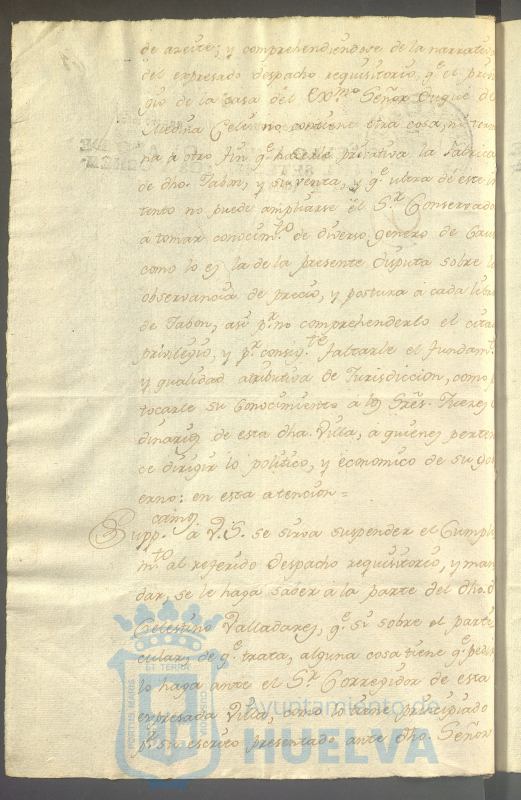 de azeite; y comprehendiendose de la narratiba
del expresado despacho requisitorio, q.e el privi
gio de la casa del Ex.mo Señor Duque de
Medina Celi no contiene otra cosa, ni termi
na á otro fin q.e hacerle pribativa la Fabrica
de dho. Jabon, y su venta, y q.e ultra de este in
tento no puede ampliarse el S.r Conservador
á tomar conocim.to de diverso genero de Caus
como lo es la de la presente disputa sobre la
observancia de precio, y postura á cada libra
de Jabon, asi p.r no comprehenderlo el citad
privilegio, y p.r consig.te faltarle el fundam.to
y qualidad atributiva de Jurisdiccion, como p
tocarle su Conocimiento a los Sres. Juezes
dinarios de esta dha. Villa, a quienes perten
ce dirigir lo politico, y economico de su gov
erno: en esta atencion =
camos
Supp. á V.S. se sirva suspender el Cumpli
m.to al referido despacho requisitorio, y man
dar, se le haga saber á la parte del dho. D
Celestino Valladares, q.e si sobre el parti
cular, de q.e trata, alguna cosa tiene q.e pedir
lo haga ante el S.r Corregidor de esta
expresada Villa, como lo tiene principiado
p.r su escrito presentado ante dho. Señor
PORTUS MARIS
ET TERRÆ
CUSTODIA
Ayuntamiento de
HUELVA